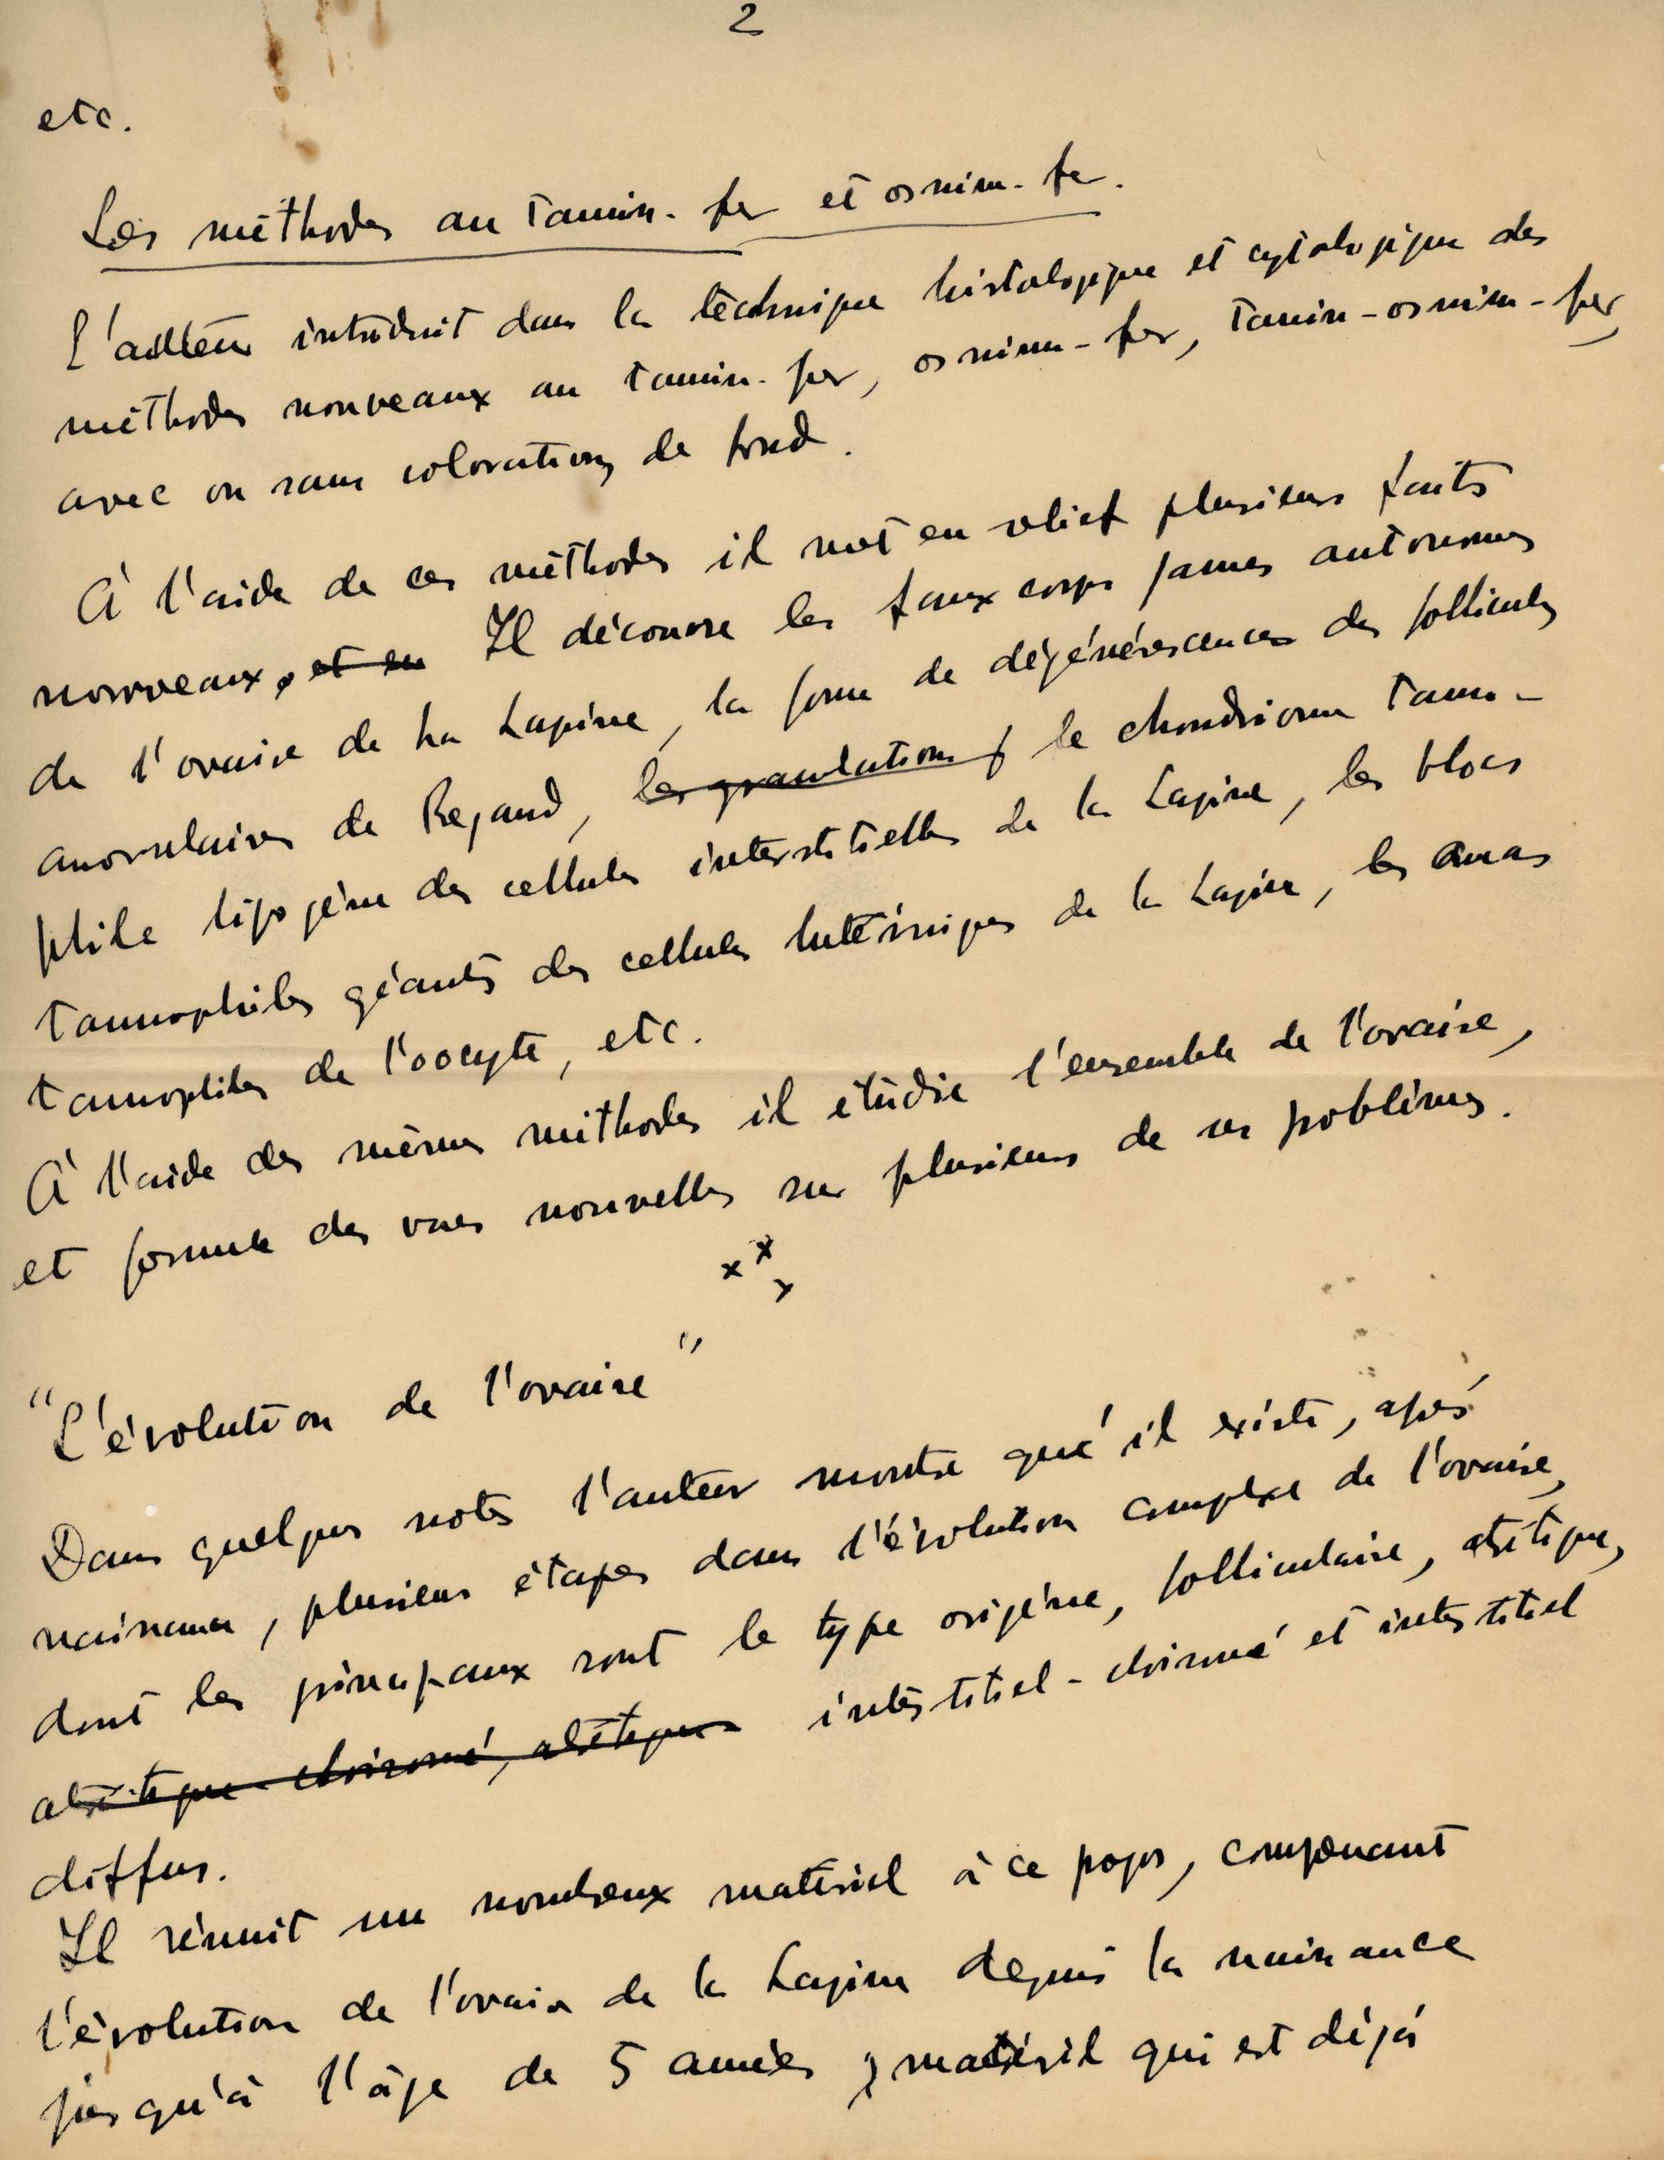 2
etc.
Les méthodes au tannin-fer et osmium-fer.
L'auteur introduit dans la technique histologique et cytologique des
méthodes nouveaux au tannin-fer, osmium-fer, tannin-osmium-fer,
avec ou sans colorations de fond.
À l'aide de ces méthodes il met en relief plusieurs faits
nouveaux, et en Il découvre les faux corps jaunes autonomes
de l'ovaire de la Lapine, la forme de dégénérescence des follicules
anovulaires de Regaud, les granulations le chondriome tanno-
phile lipogène des cellules interstitielles de la Lapine, les blocs
tannophiles géants des cellules lutéiniques de la Lapine, les amas
tannophiles de l'oocyte, etc.
À l'aide des mêmes méthodes il étudie l'ensemble de l'ovaire,
et formule des vues nouvelles sur plusieurs de ses problèmes.
x x x
"L'évolution de l'ovaire"
Dans quelques notes l'auteur montre qu'il existe, après
naissance, plusieurs étapes dans l'évolution complexe de l'ovaire,
dont les principaux sont le type origène, folliculaire, atrétique,
atrétique-cloisonné, atrétique interstitiel-cloisonné et interstitiel
diffus.
Il réunit un nombreux matériel à ce propos, comprenant
l'évolution de l'ovaire de la Lapine depuis la naissance
jusqu'à l'âge de 5 années, matériel qui est déjà